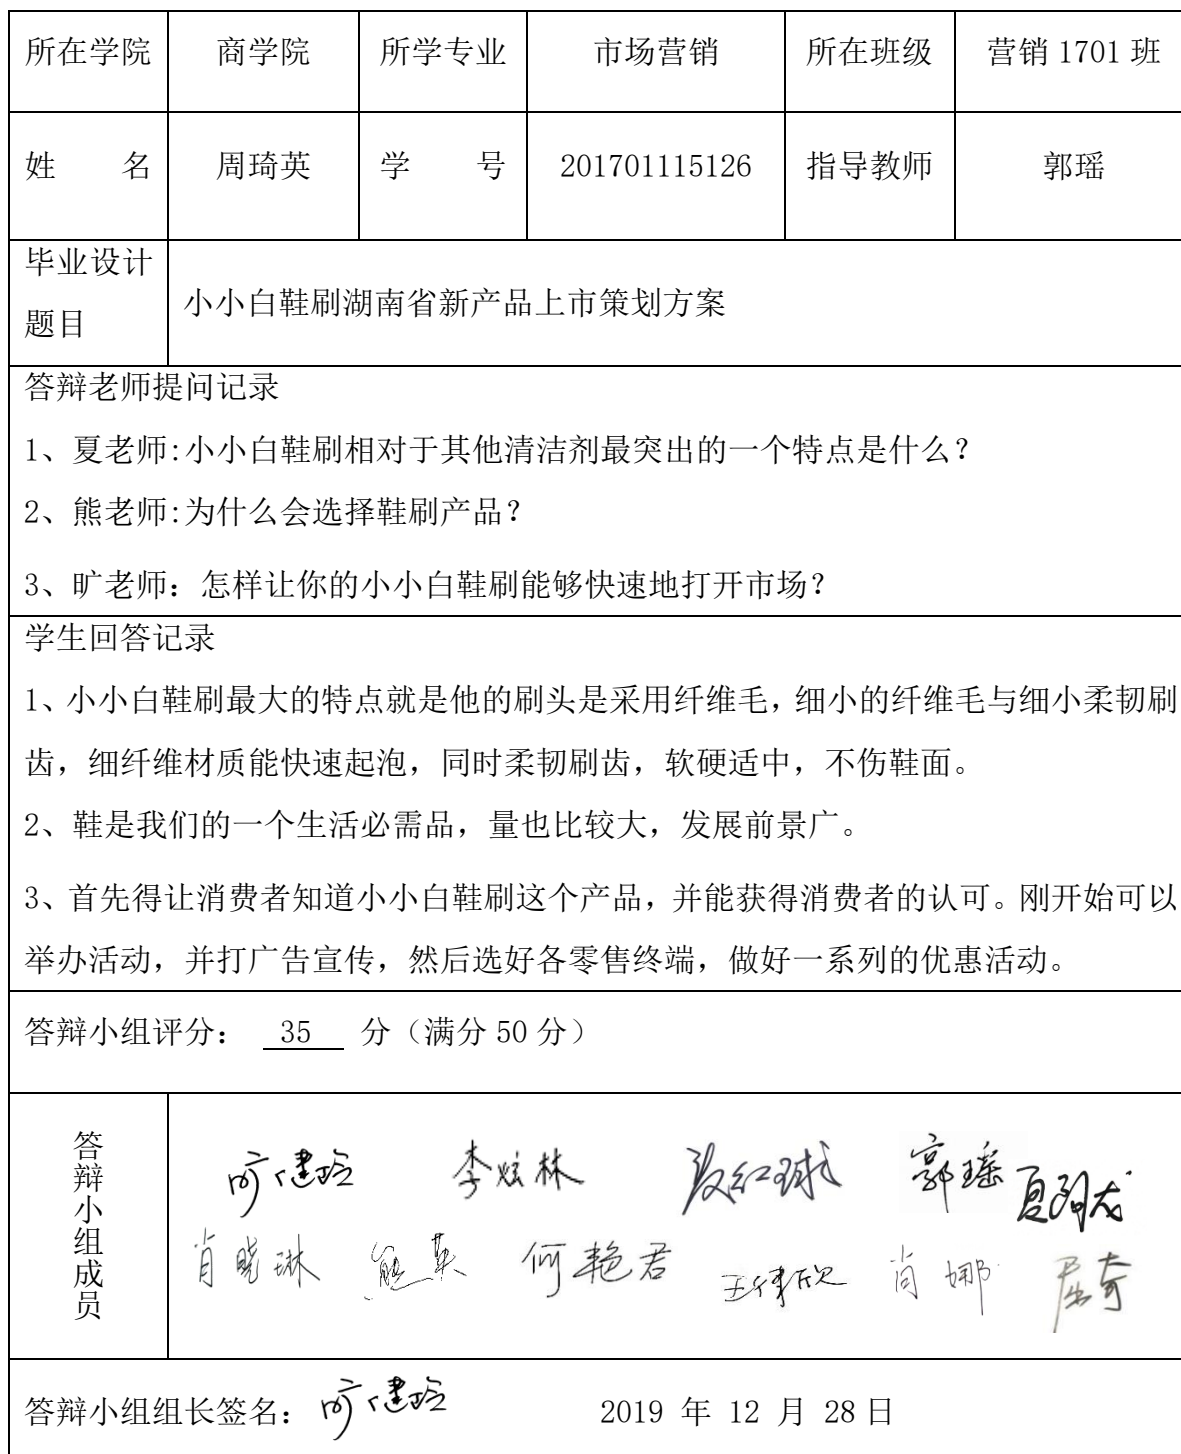 所在学院 商学院 所学专业 市场营销 所在班级 营销 1701 班
姓 名 周琦英 学 号 201701115126 指导教师 郭瑶
毕业设计
题目
小小白鞋刷湖南省新产品上市策划方案
答辩老师提问记录
1、夏老师:小小白鞋刷相对于其他清洁剂最突出的一个特点是什么?
2、熊老师:为什么会选择鞋刷产品?
3、旷老师：怎样让你的小小白鞋刷能够快速地打开市场?
学生回答记录
1、小小白鞋刷最大的特点就是他的刷头是采用纤维毛，细小的纤维毛与细小柔韧刷
齿，细纤维材质能快速起泡，同时柔韧刷齿，软硬适中，不伤鞋面。
2、鞋是我们的一个生活必需品，量也比较大，发展前景广。
3、首先得让消费者知道小小白鞋刷这个产品，并能获得消费者的认可。刚开始可以
举办活动，并打广告宣传，然后选好各零售终端，做好一系列的优惠活动。
答辩小组评分： 35 分（满分 50 分）
答辩小组成员
李炫林 郭瑶
肖晓琳 熊英 何艳君 肖娜 屈奇
答辩小组组长签名： 2019 年 12 月 28 日